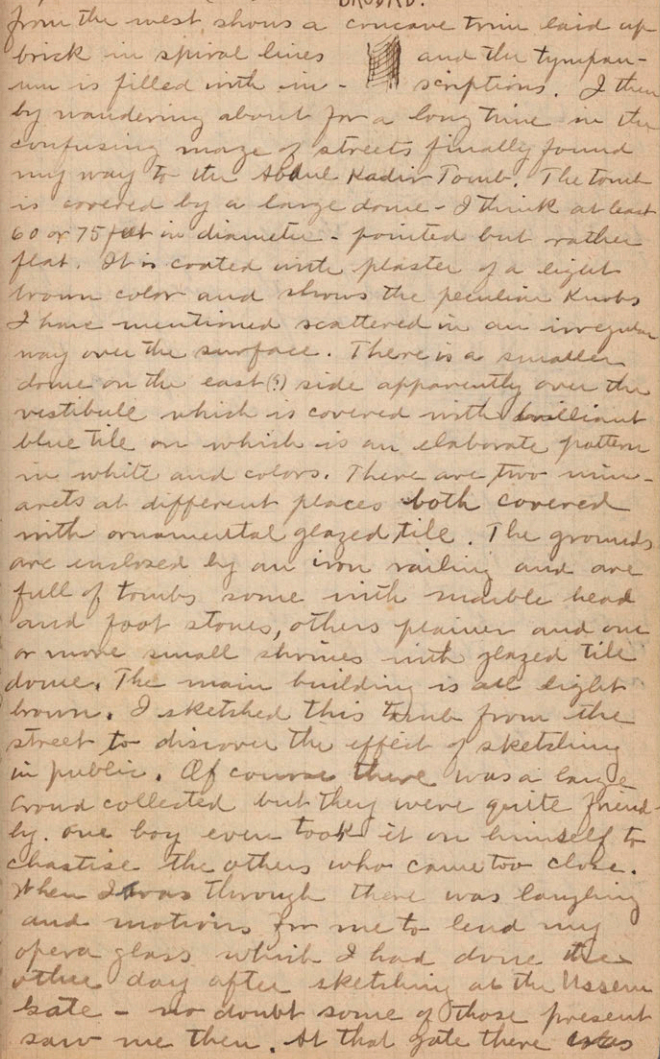 from the west, shows a concave trim laid up
brick in spiral lines and the tympan-
um is filled with in- scriptions. I then
by wandering about for a long time in the
confusing maze of streets finally found
my way to the Abdul Kadir Tomb. The tomb
is covered by a large dome - I think at least
60 or 75 feet in diameter - pointed but rather
flat. It is coated with plaster of a light
brown color and shows the peculiar knobs
I have mentioned scattered in an irregular
way over the surface. There is a smaller
dome on the east(?) side apparently over the
vestibule which is covered with brilliant
blue tile on which is an elaborate pattern
in white and colors. There are two min-
arets at different places both covered
with ornamental glazed tile. The grounds
are inclosed by an iron railing and are
full of tombs some with marble head
and foot stones, others plainer and one
or more small shrines with glazed tile
dome. The main building is all light
brown. I sketched this tomb from the
street to discover the effect of sketching
in public. Of course there was a large
crowd collected but they were quite friend-
ly. One boy even took it on himself to
chastise the others who came too close.
When I was through there was laughing
and motions for me to lend my
opera glass which I had done the
other day after sketching at the
Gate - no doubt some of those present
saw me then. At that gate there was